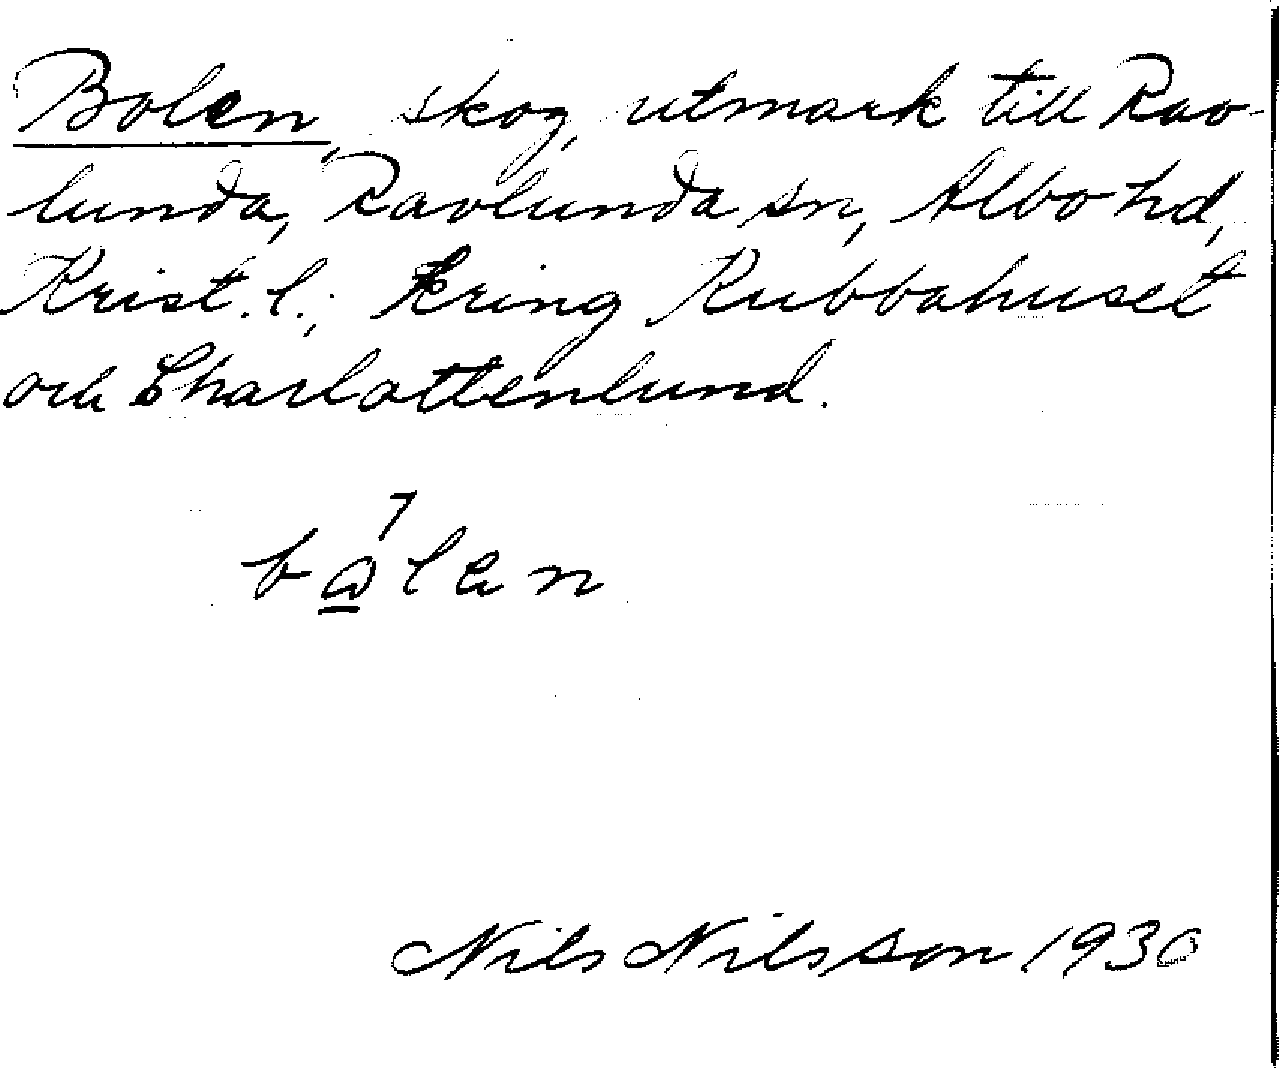 Bolen, skog, utmark till Rav-
lunda, Ravlunda sn, Albo hd,
Krist. l.; Kring Rubbahuset
och Charlottenlund.
Nils Nilsson 1930